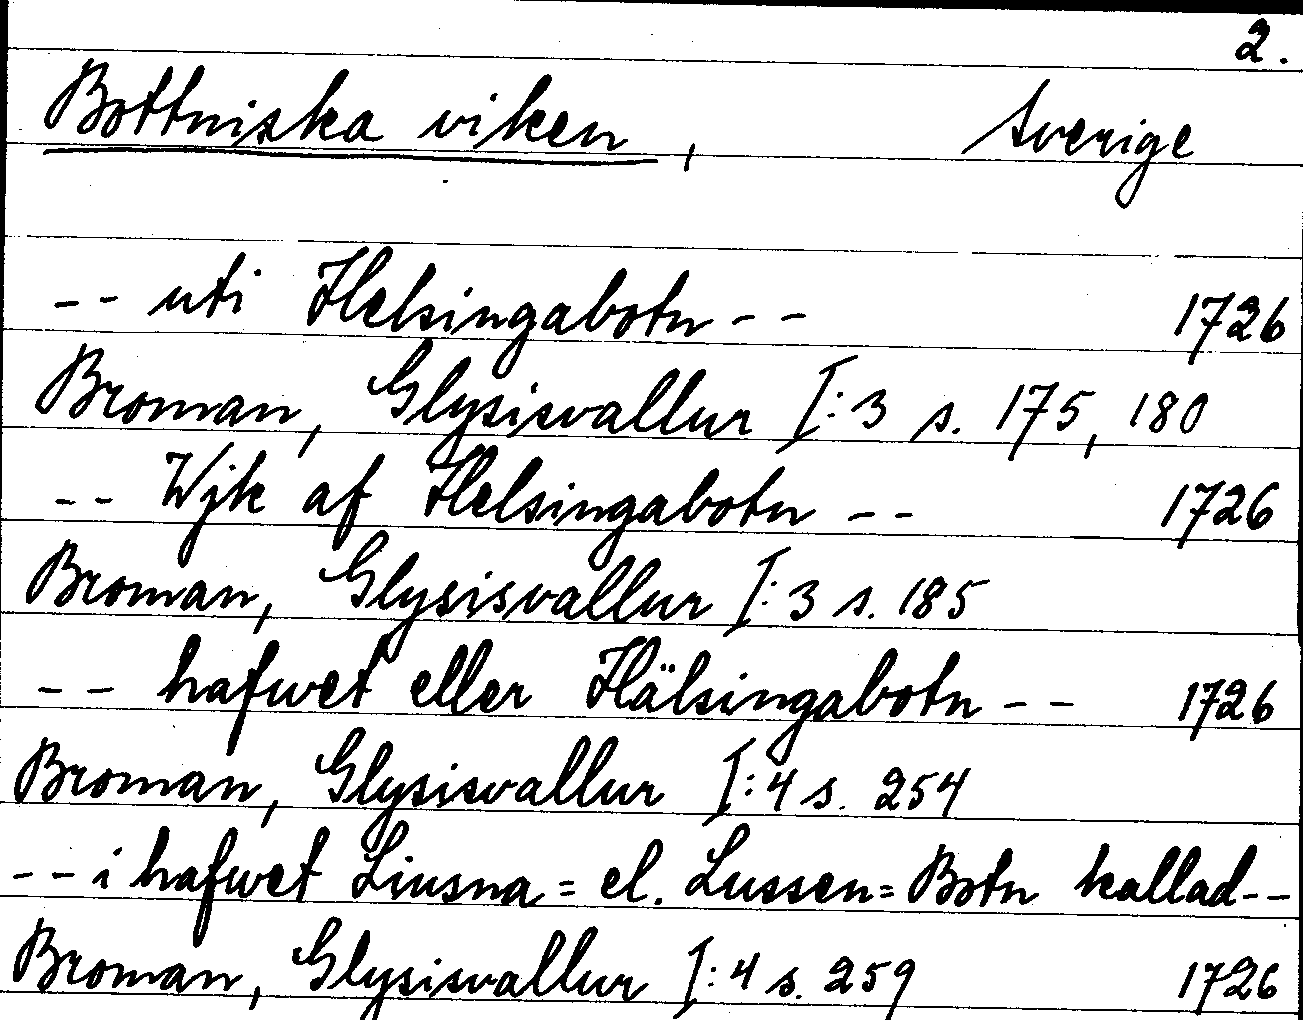 2.
Bottniska viken, Sverige
-- uti Helsingabotn -- 1726
Broman, Glysisvallur I:3 s. 175, 180
-- Wjk af Helsingabotn -- 1726
Broman, Glysisvallur I:3 s. 185
-- hafwet eller Hälsingabotn -- 1726
Broman, Glysisvallur I:4 s. 254
-- i hafwet Liusna= el. Lussen= Botn kallad --
Broman, Glysisvallur I:4 s. 259 1726